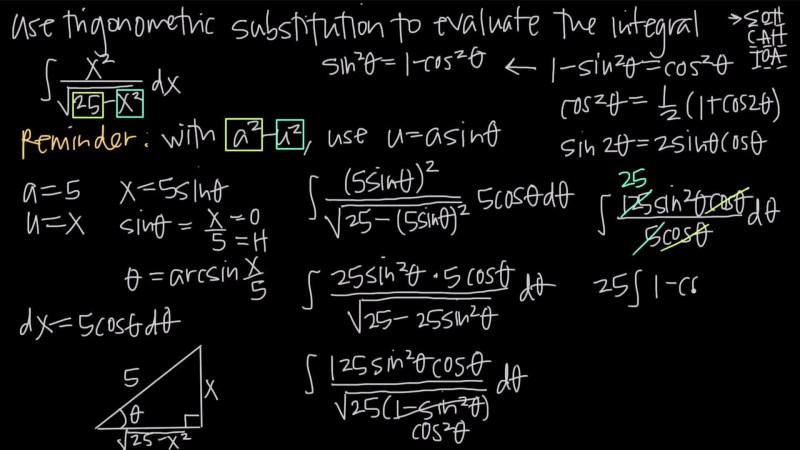 use trigonometric substitution to evaluate the integral
→ SOH
CAH
TOA
∫ x²/√(25-x²) dx
sin²θ = 1-cos²θ ← 1-sin²θ = cos²θ
cos²θ = 1/2 (1+cos2θ)
sin2θ = 2sinθcosθ
Reminder: with a²-u², use u=asinθ
a=5 x=5sinθ
u=x sinθ = x/5 =O =H
θ = arcsin x/5
dx=5cosθdθ
5
x
θ
√(25-x²)
∫ (5sinθ)²/√(25-(5sinθ)²) 5cosθdθ
∫ 25sin²θ·5cosθ/√(25-25sin²θ) dθ
∫ 125sin²θcosθ/√(25(1-sin²θ)) dθ
cos²θ
25
∫ 125sin²θcosθ/5cosθ dθ
25∫ 1-co